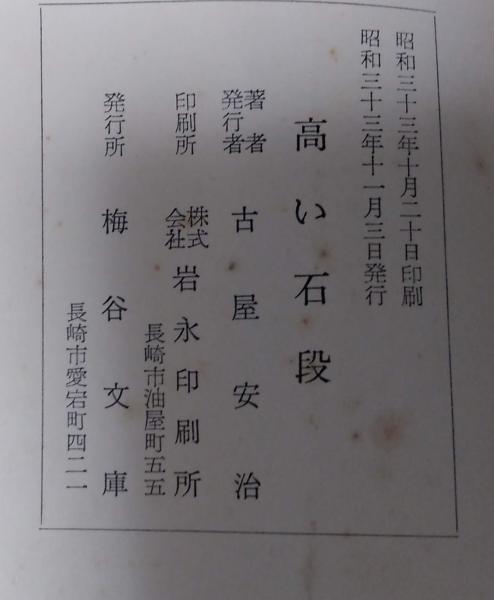 昭和三十三年十月二十日印刷
昭和三十三年十一月三日発行
高い石段
著者
発行者 古屋安治
印刷所 株式会社 岩永印刷所
長崎市油屋町五五
発行所 梅谷文庫
長崎市愛宕町四二一